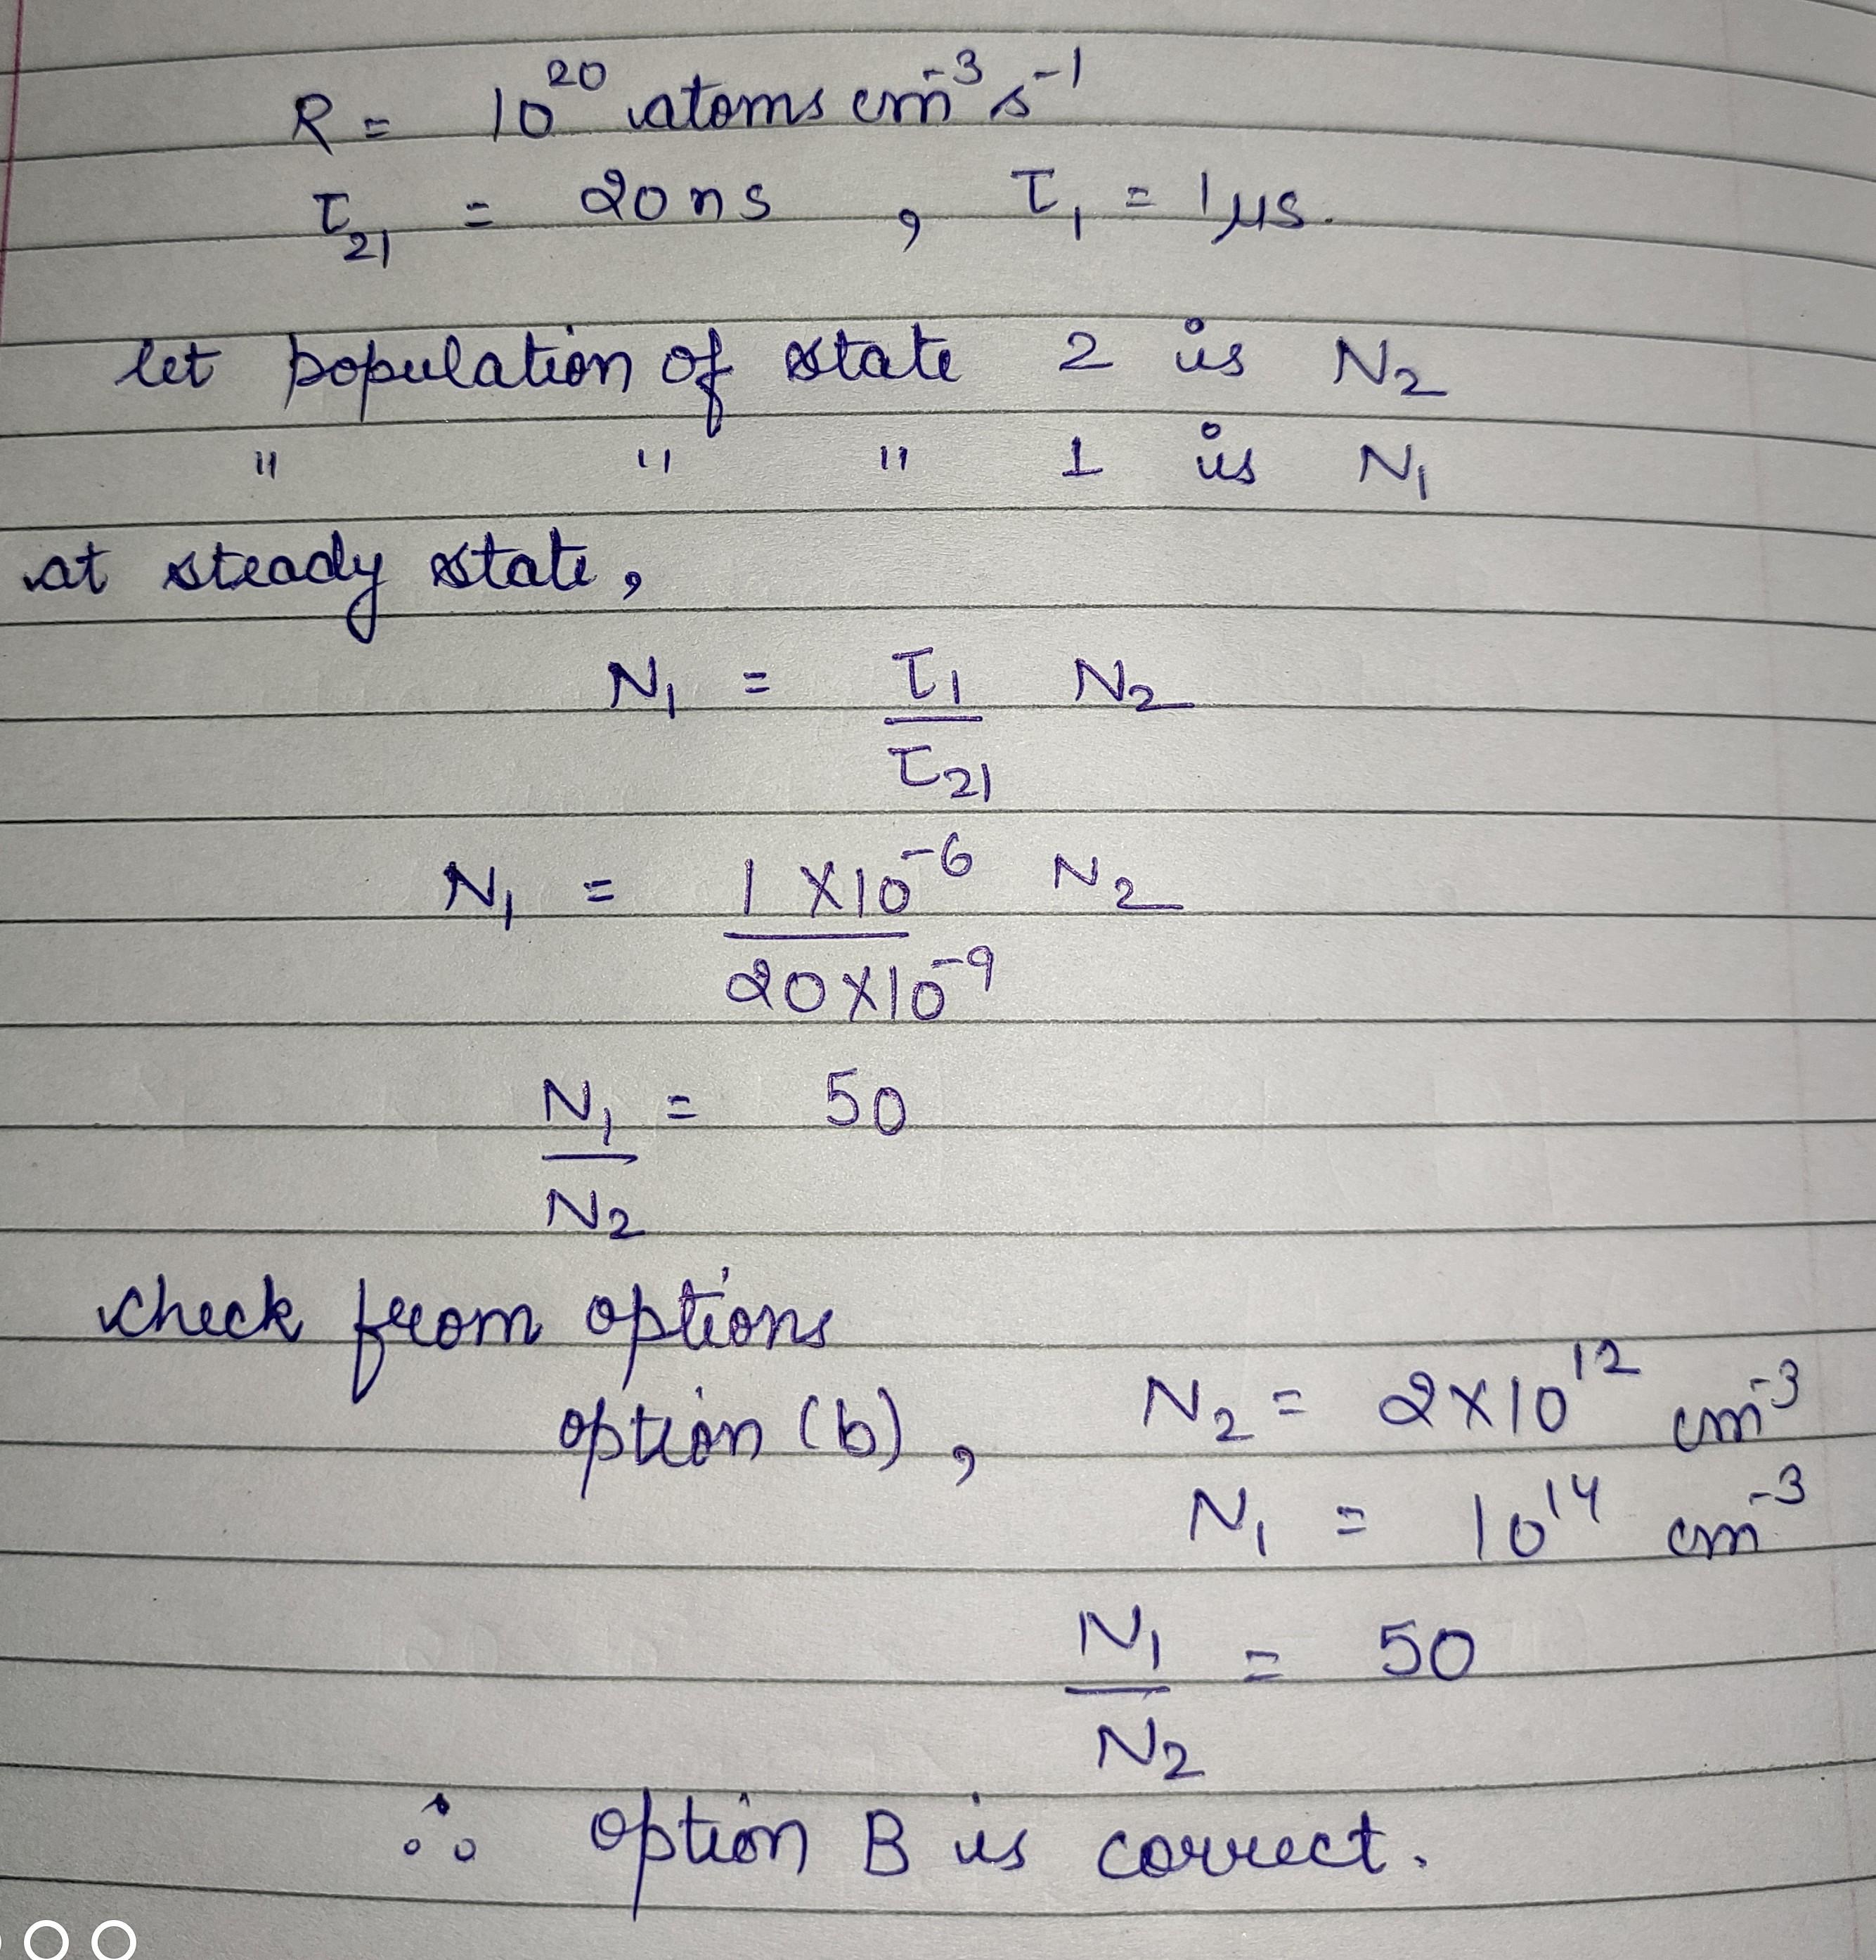 R = 10²⁰ atoms cm⁻³ s⁻¹
τ₂₁ = 20 ns , τ₁ = 1 μs.
let population of state 2 is N₂
" " " 1 is N₁
at steady state,
N₁ = τ₁/τ₂₁ N₂
N₁ = 1 × 10⁻⁶/20 × 10⁻⁹ N₂
N₁/N₂ = 50
check from options
option (b), N₂ = 2 × 10¹² cm⁻³
N₁ = 10¹⁴ cm⁻³
N₁/N₂ = 50
∴ option B is correct.